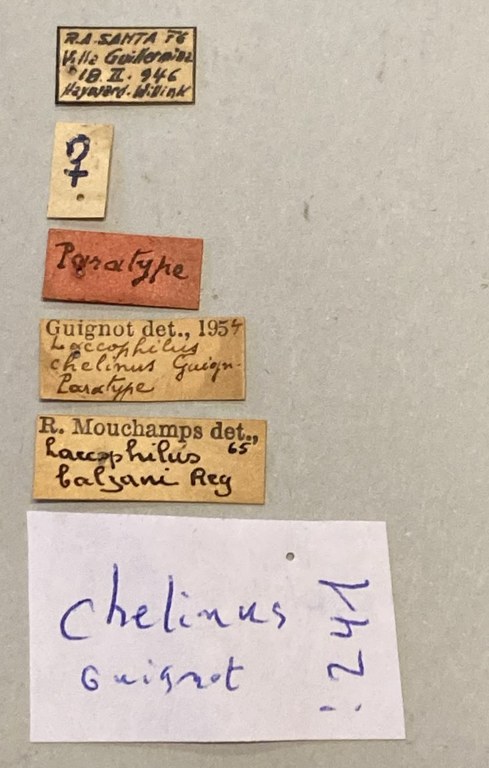 R.A. SANTA FE
Villa Guillermina
18. II. 946
Hayward. Willink
♀
Paratype
Guignot det., 1954
Laccophilus
chelinus Guign.
Paratype
R. Mouchamps det.,
65
Laccophilus
balzani Reg
Chelinus
Guignot
241